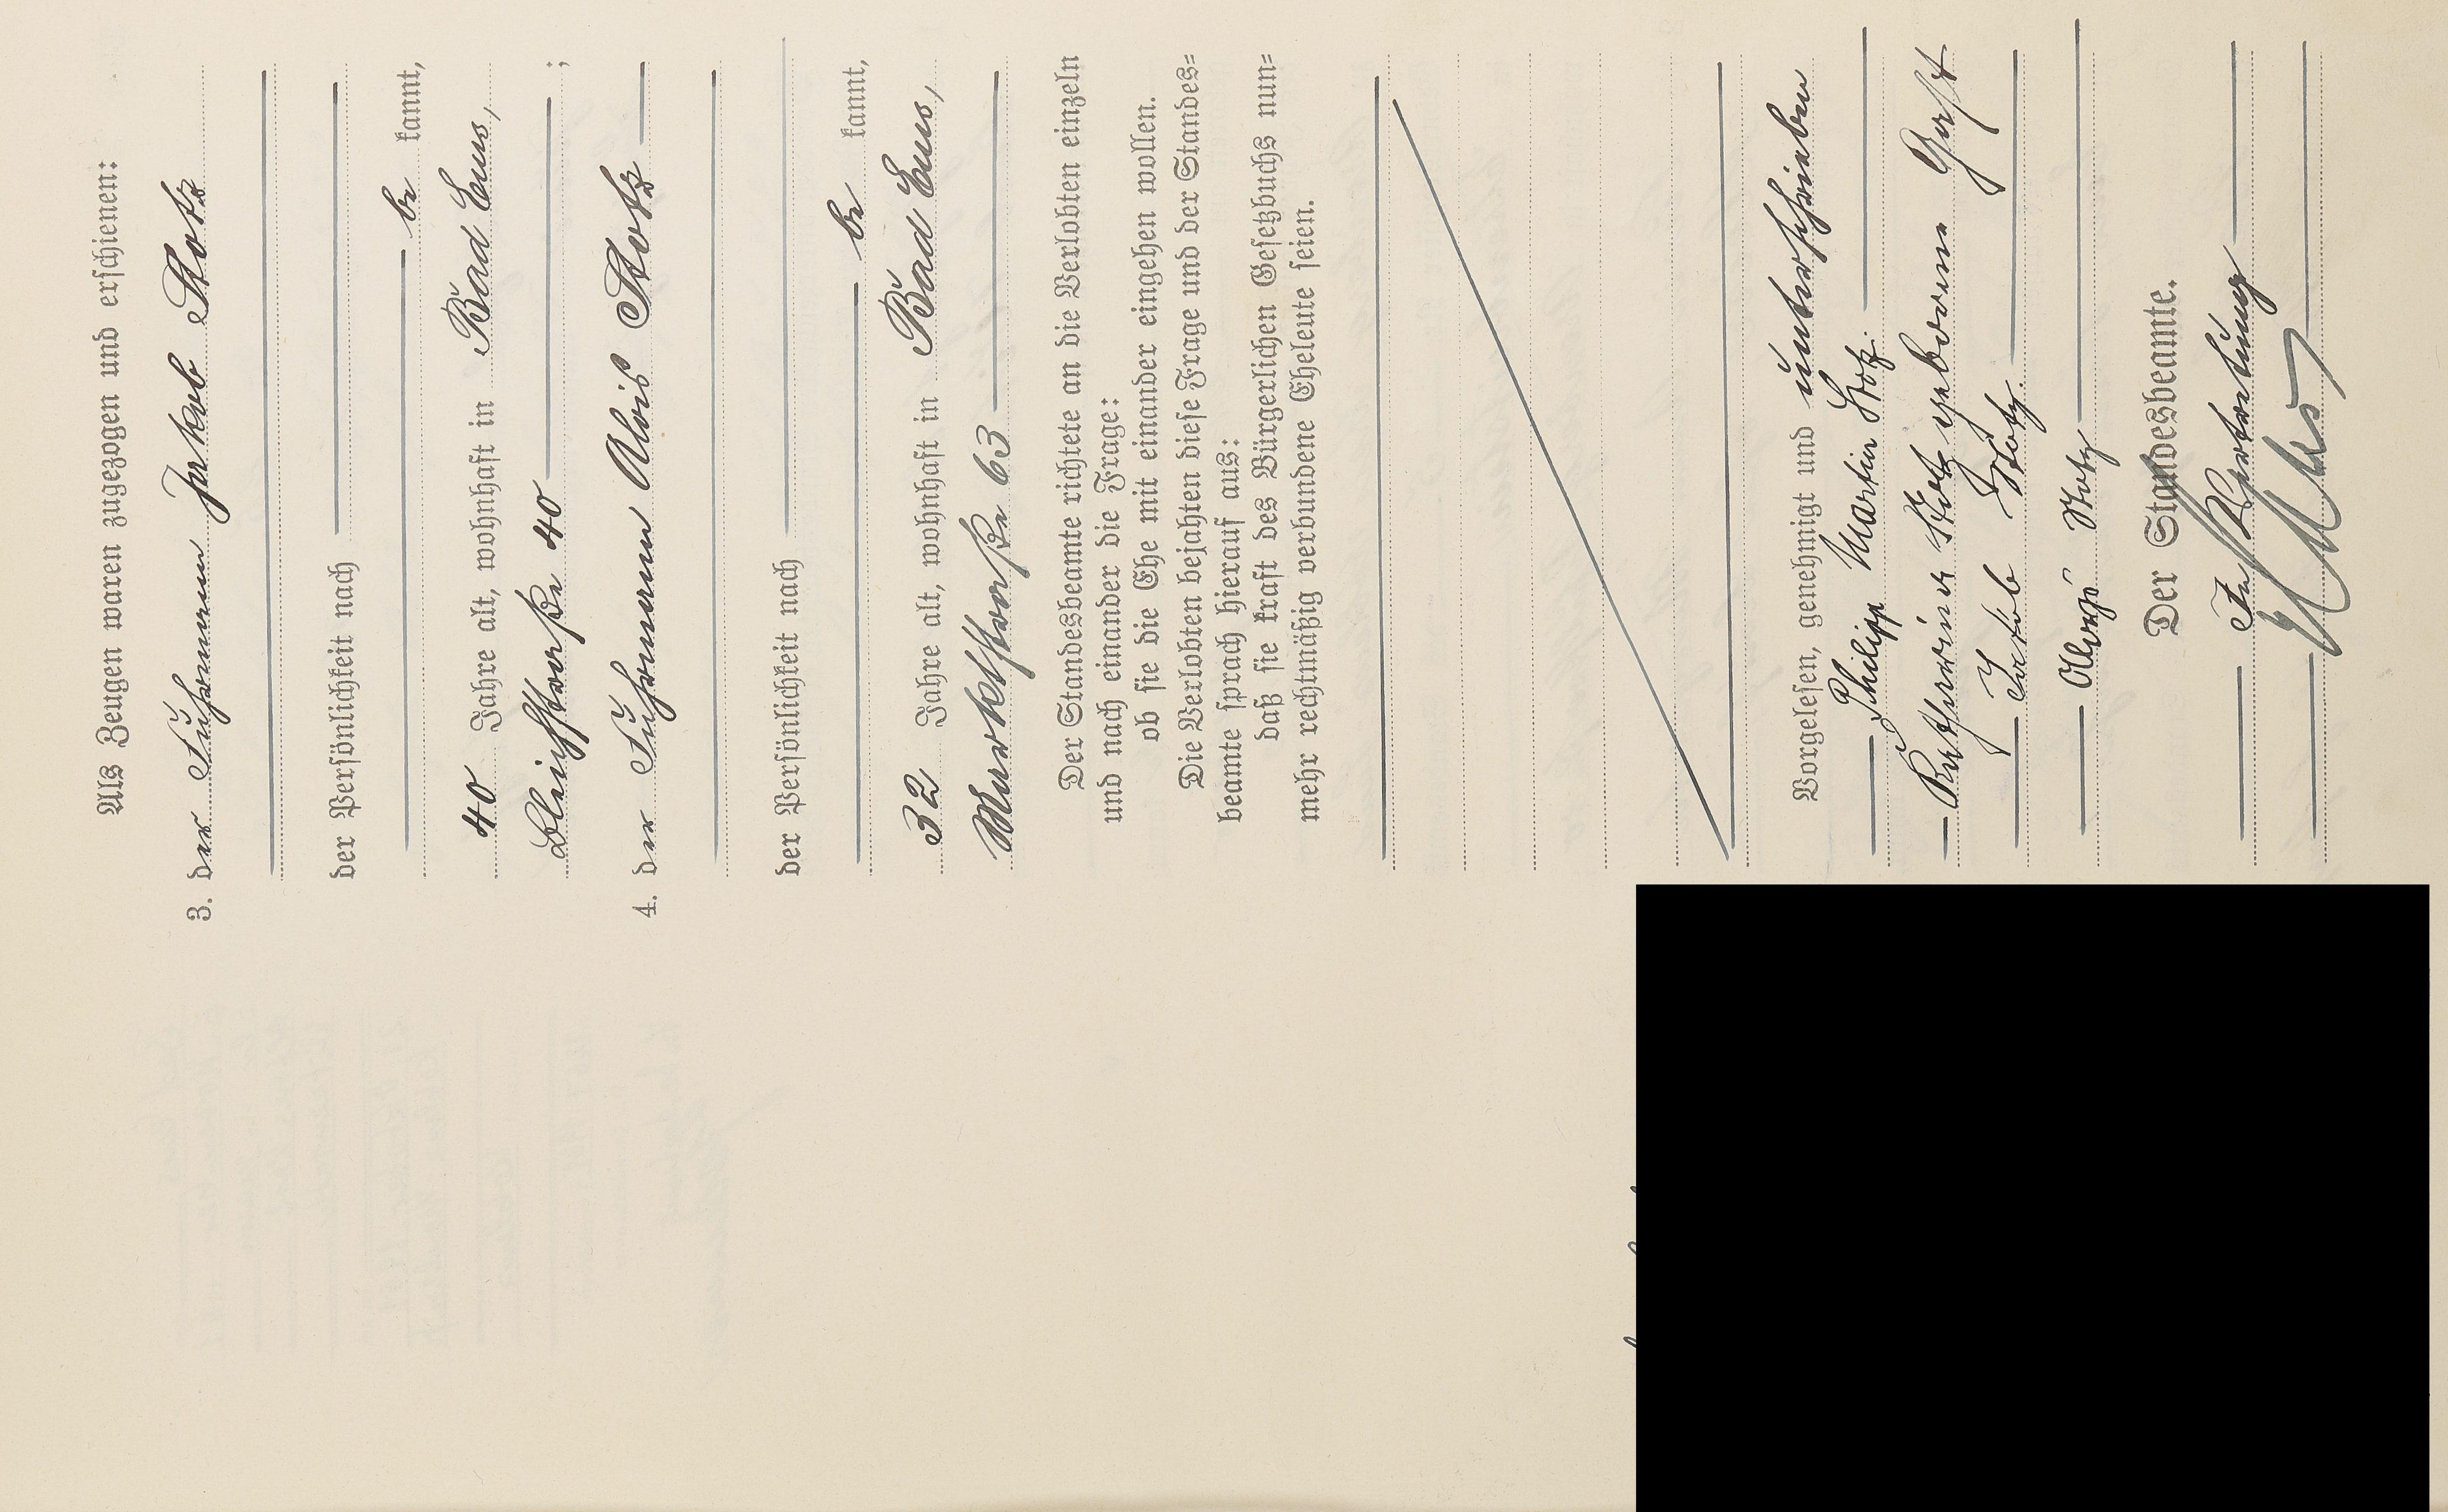 Als Zeugen waren zugezogen und erschienen:
3. der Fuhrmann Jakob Stotz
der Persönlichkeit nach
be kannt,
40 Jahre alt, wohnhaft in Bad Ems,
Bleichstraße 40 ;
4. der Fuhrmann Alois Stotz
der Persönlichkeit nach
be kannt,
32 Jahre alt, wohnhaft in Bad Ems,
Marktstraße 63
Der Standesbeamte richtete an die Verlobten einzeln
und nach einander die Frage:
ob sie die Ehe mit einander eingehen wollen.
Die Verlobten bejahten diese Frage und der Standes=
beamte sprach hierauf aus:
daß sie kraft des Bürgerlichen Gesetzbuchs nun=
mehr rechtmäßig verbundene Eheleute seien.
Vorgelesen, genehmigt und unterschrieben
Philipp Martin Stotz.
Katharina Stotz geborene
Jakob Stotz.
Stotz
Der Standesbeamte.
In Vertretung